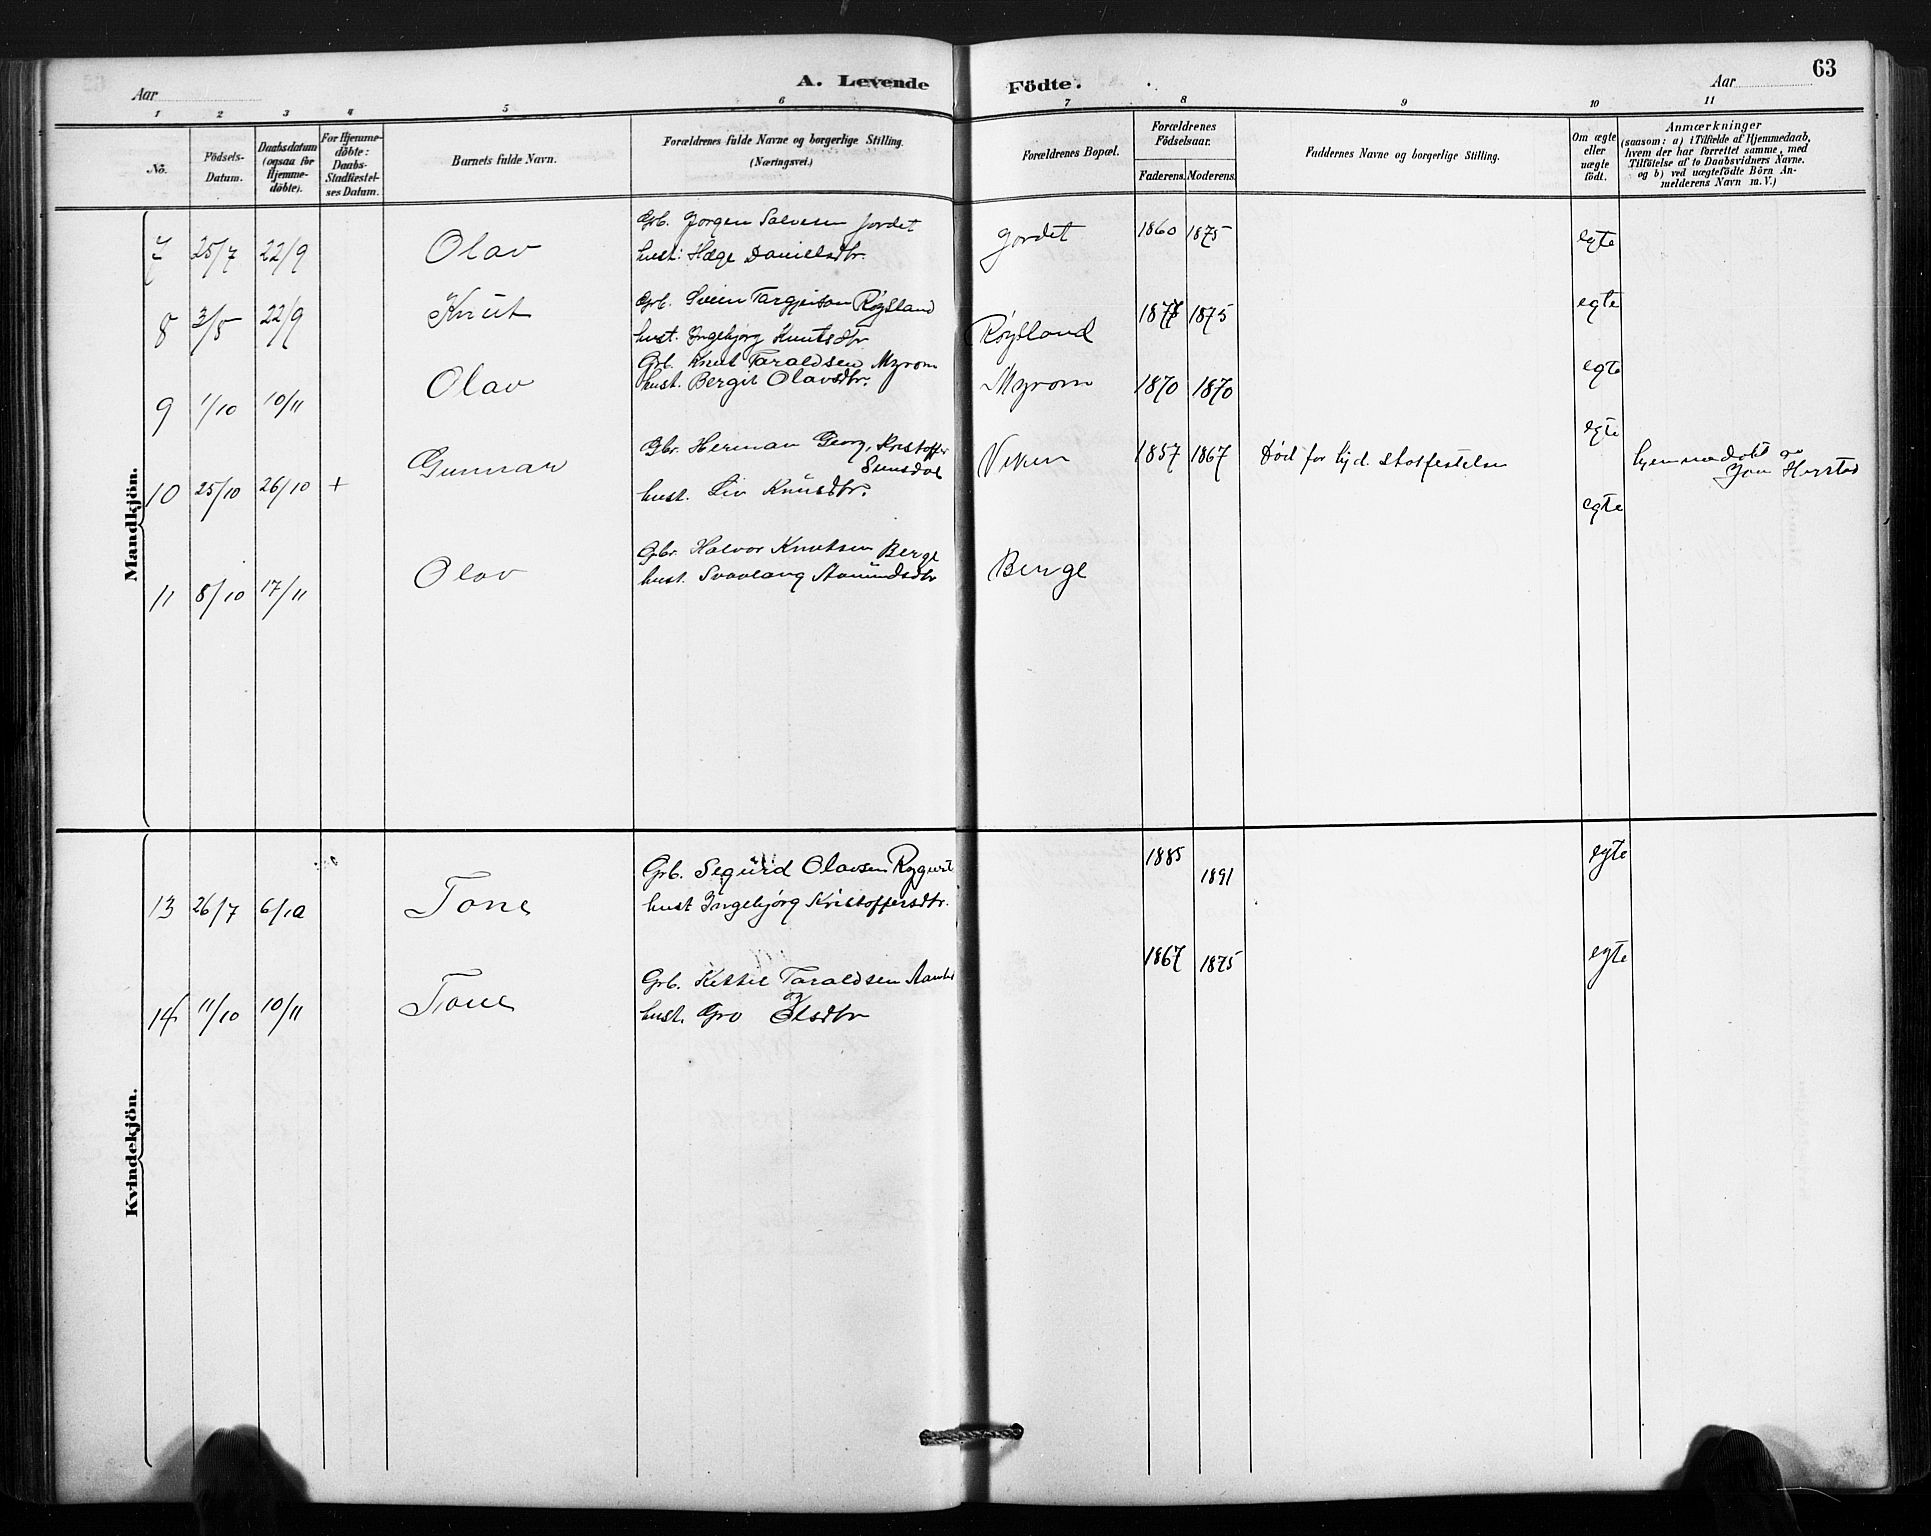 63
A. Levende Födte.
Aar Aar
1 2 3 4 5 6 7 8 9 10 11
No.
Födsels-Datum.
Daabsdatum (ogsaa for Hjemme-döbte).
For Hjemme-döbte: Daabs-Stadfæstel-ses Datum.
Barnets fulde Navn.
Forældrenes fulde Navne og borgerlige Stilling. (Næringsvei.)
Forældrenes Bopæl.
Forældrenes Födselsaar.
Faderens. Moderens.
Faddernes Navne og borgerlige Stilling.
Om ægte eller uægte födt.
Anmærkninger
(saasom: a) i Tilfælde af Hjemmedaab,
hvem der har forrettet samme, med
Tilföielse af to Daabsvidners Navne.
og b) ved uægtefödte Börn An-
melderens Navn m. V.)
Mandkjön.
7 25/7 22/9 Olav Grb. Jørgen Salvesen Jordet Jordet 1860 1875 egte
hust: Hæge Danielsdtr.
8 3/8 22/9 Knut Grb. Svein Targjeison Røysland Røysland 1875 egte
hust. Ingebjørg Knutsdtr.
9 1/10 10/11 Olav Grb. Knut Taraldsen Myrom Myrom 1870 1870 egte
hust. Bergit Olavsdtr.
10 25/10 26/10 + Gunnar Gbr. Herman Georg Kristoffer Viken 1857 1867 Död for kjd. statfestelse egte hjemmedøbt av
hust. Liv Knusdtr.
11 8/10 17/11 Olav Gbr. Halvor Knutsen Berge Berge egte
hust. Svavlaug Aamundsdtr
Kvindekjön.
13 26/7 6/10 Tone Grb. Segurd Olavsen 1885 1891 egte
hust Ingebjørg Kristoffersdtr.
14 11/10 10/11 Tone Grb. Kettil Taraldsen 1867 1875 egte
og
hust. Gro Olsdtr